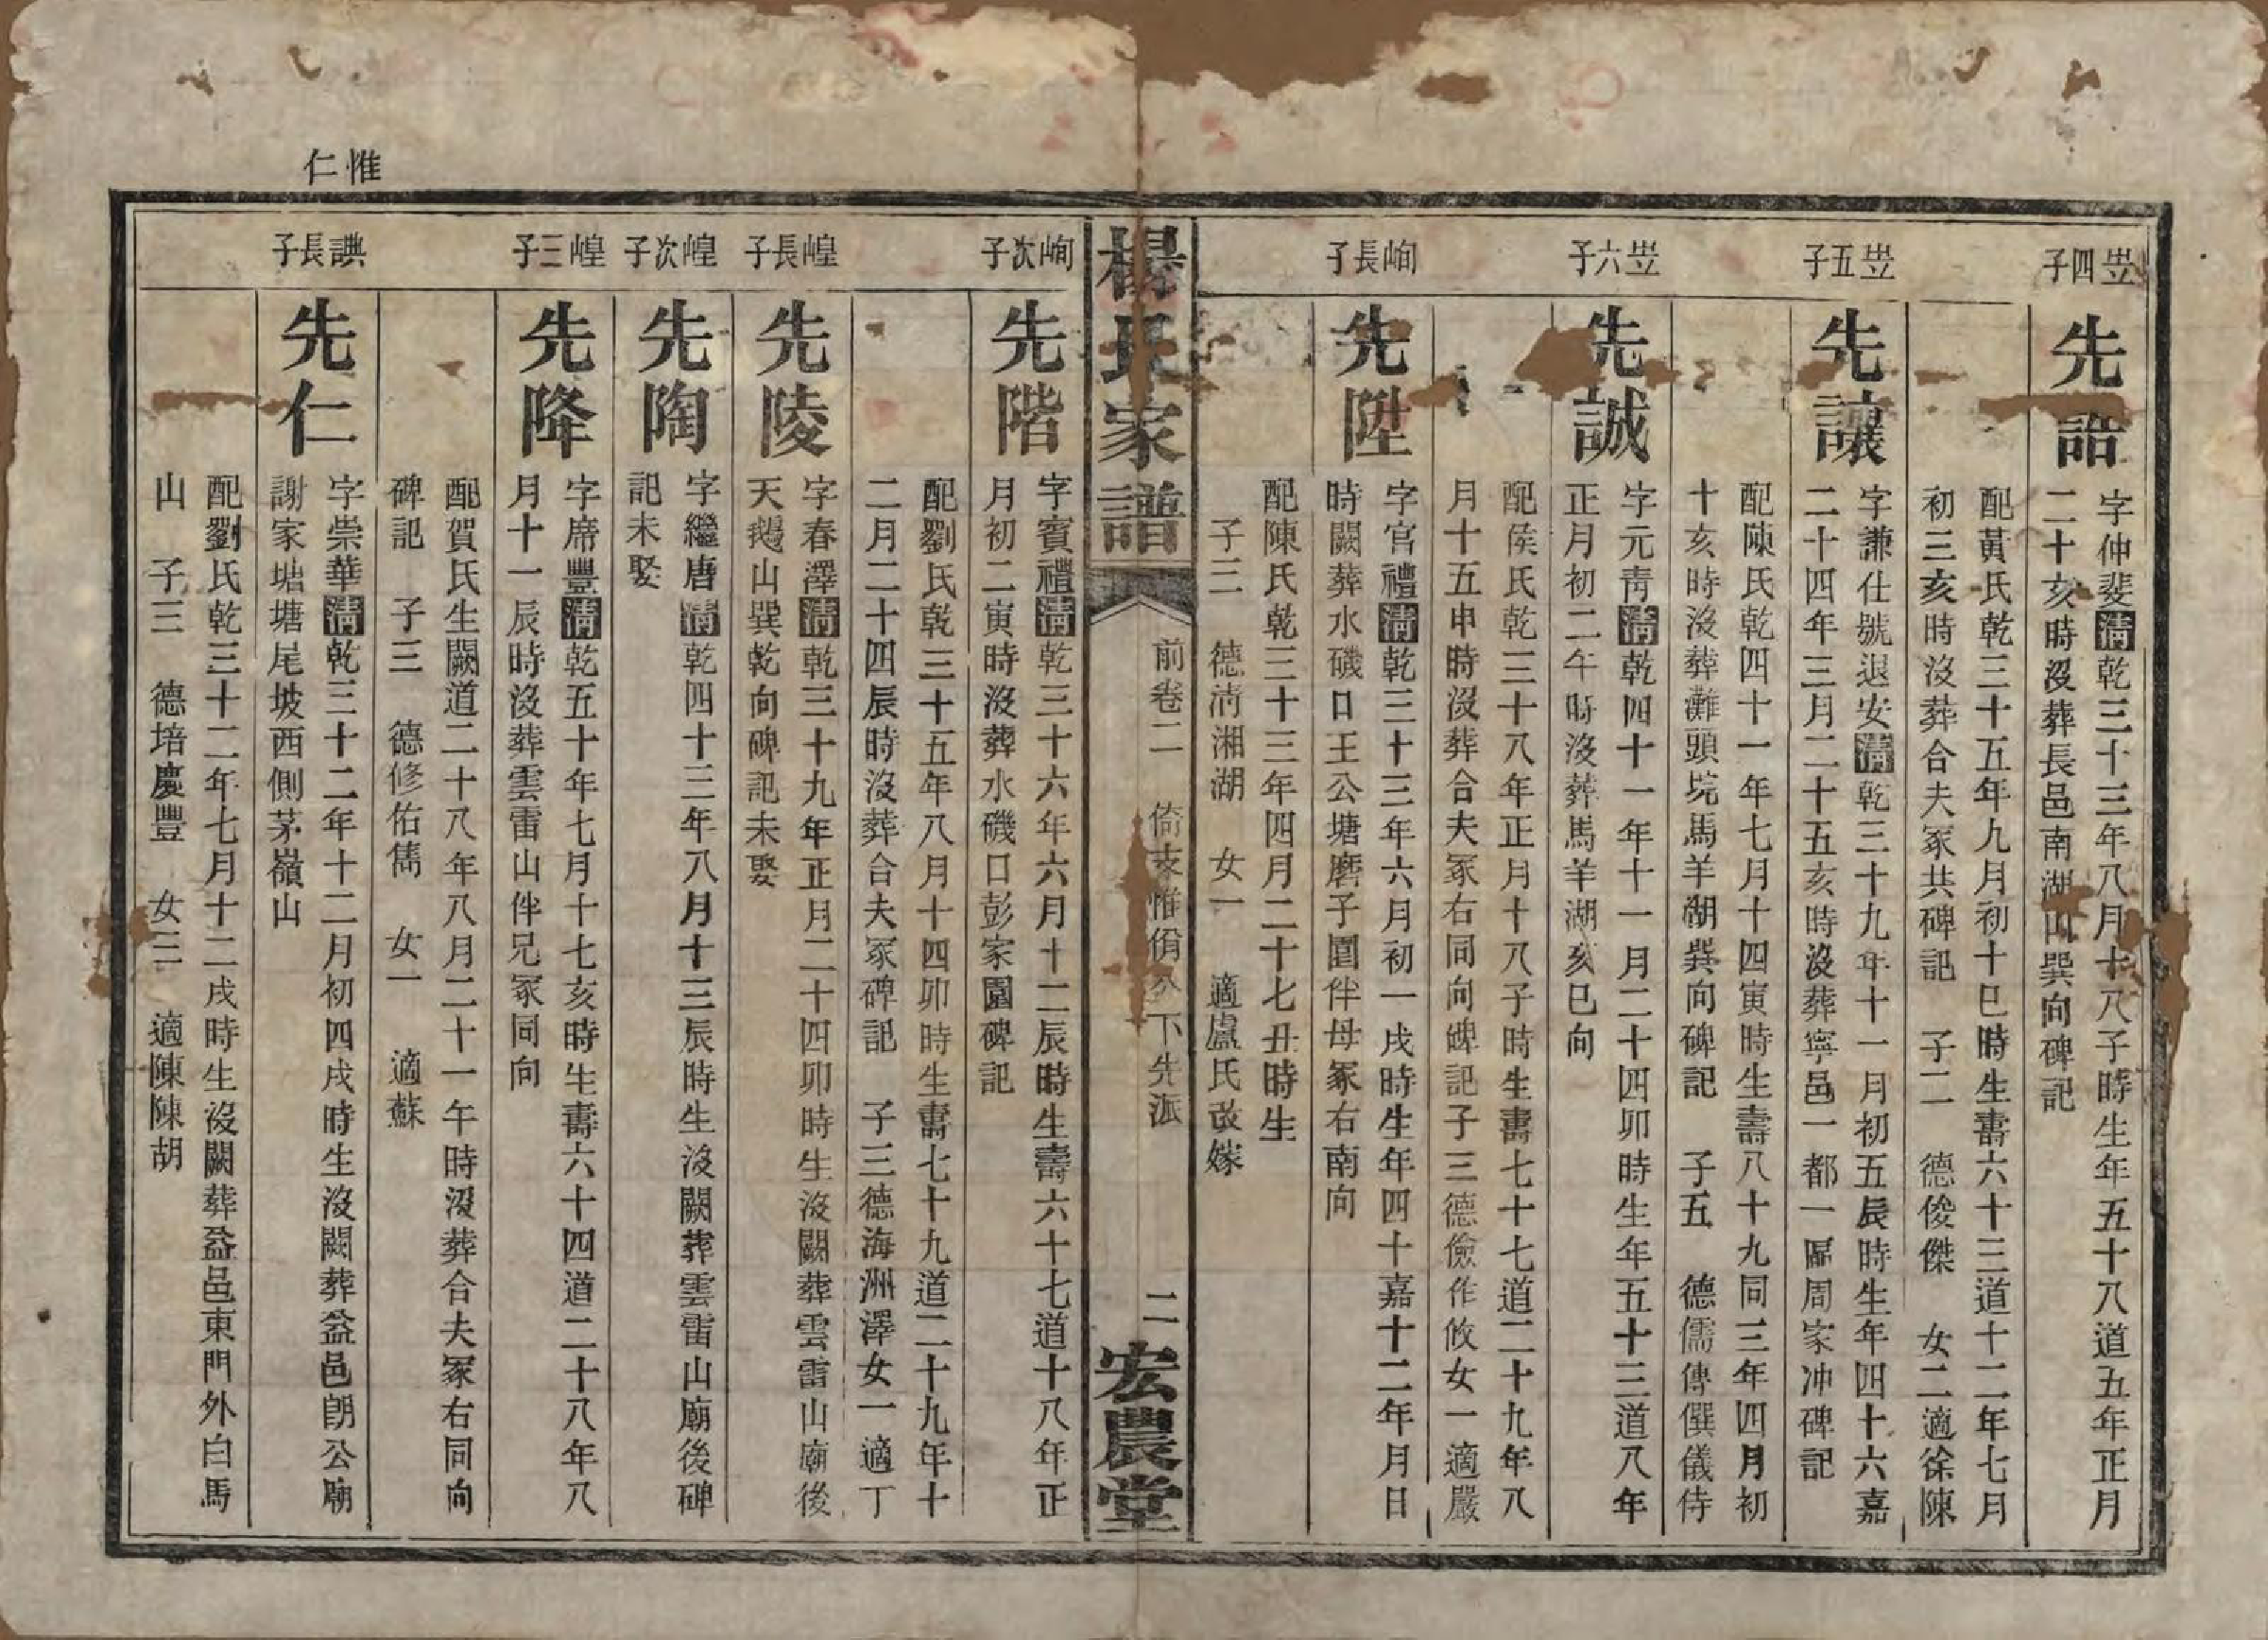 岦四子
先詒
字仲斐清乾三十三年八月十八子時生年五十八道五年正月
二十亥時沒葬長邑南湖山巽向碑記
配黃氏乾三十五年九月初十巳時生壽六十三道十二年七月
初三亥時沒葬合夫冢共碑記　子二　德俊傑　女二適徐陳
岦五子
先讓
字謙仕號退安清乾三十九年十一月初五辰時生年四十六嘉
二十四年三月二十五亥時沒葬寧邑一都一區周家冲碑記
配陳氏乾四十一年七月十四寅時生壽八十九同三年四月初
十亥時沒葬灘頭垸馬羊湖巽向碑記　子五　德儒傳僎儀侍
岦六子
先誠
字元靑清乾四十一年十一月二十四卯時生年五十三道八年
正月初二午時沒葬馬羊湖亥巳向
配侯氏乾三十八年正月十八子時生壽七十七道二十九年八
月十五申時沒葬合夫冢右同向碑記子三德儉作攸女一適嚴
峋長子
先陞
字官禮清乾三十三年六月初一戌時生年四十嘉十二年月日
時闕葬水磯口王公塘磨子園伴母冢右南向
配陳氏乾三十三年四月二十七丑時生
子三　德淸湘湖　女一　適盧氏改嫁
楊氏家譜
前卷二　倚支惟俏公下先派
二
宏農堂
峋次子
先階
字賓禮清乾三十六年六月十二辰時生壽六十七道十八年正
月初二寅時沒葬水磯口彭家園碑記
配劉氏乾三十五年八月十四卯時生壽七十九道二十九年十
二月二十四辰時沒葬合夫冢碑記　子三德海洲澤女一適丁
崲長子
先陵
字春澤清乾三十九年正月二十四卯時生沒闕葬雲雷山廟後
天鵝山巽乾向碑記未娶
崲次子
先陶
字繼唐清乾四十三年八月十三辰時生沒闕葬雲雷山廟後碑
記未娶
崲三子
先降
字席豐清乾五十年七月十七亥時生壽六十四道二十八年八
月十一辰時沒葬雲雷山伴兄冢同向
配賀氏生闕道二十八年八月二十一午時沒葬合夫冢右同向
碑記　子三　德修佑儁　女一　適蘇
惟仁
㖵長子
先仁
字崇華清乾三十二年十二月初四戌時生沒闕葬益邑朗公廟
謝家塘塘尾坡西側茅嶺山
配劉氏乾三十二年七月十二戌時生沒闕葬益邑東門外白馬
山　子三　德培慶豐　女三　適陳陳胡